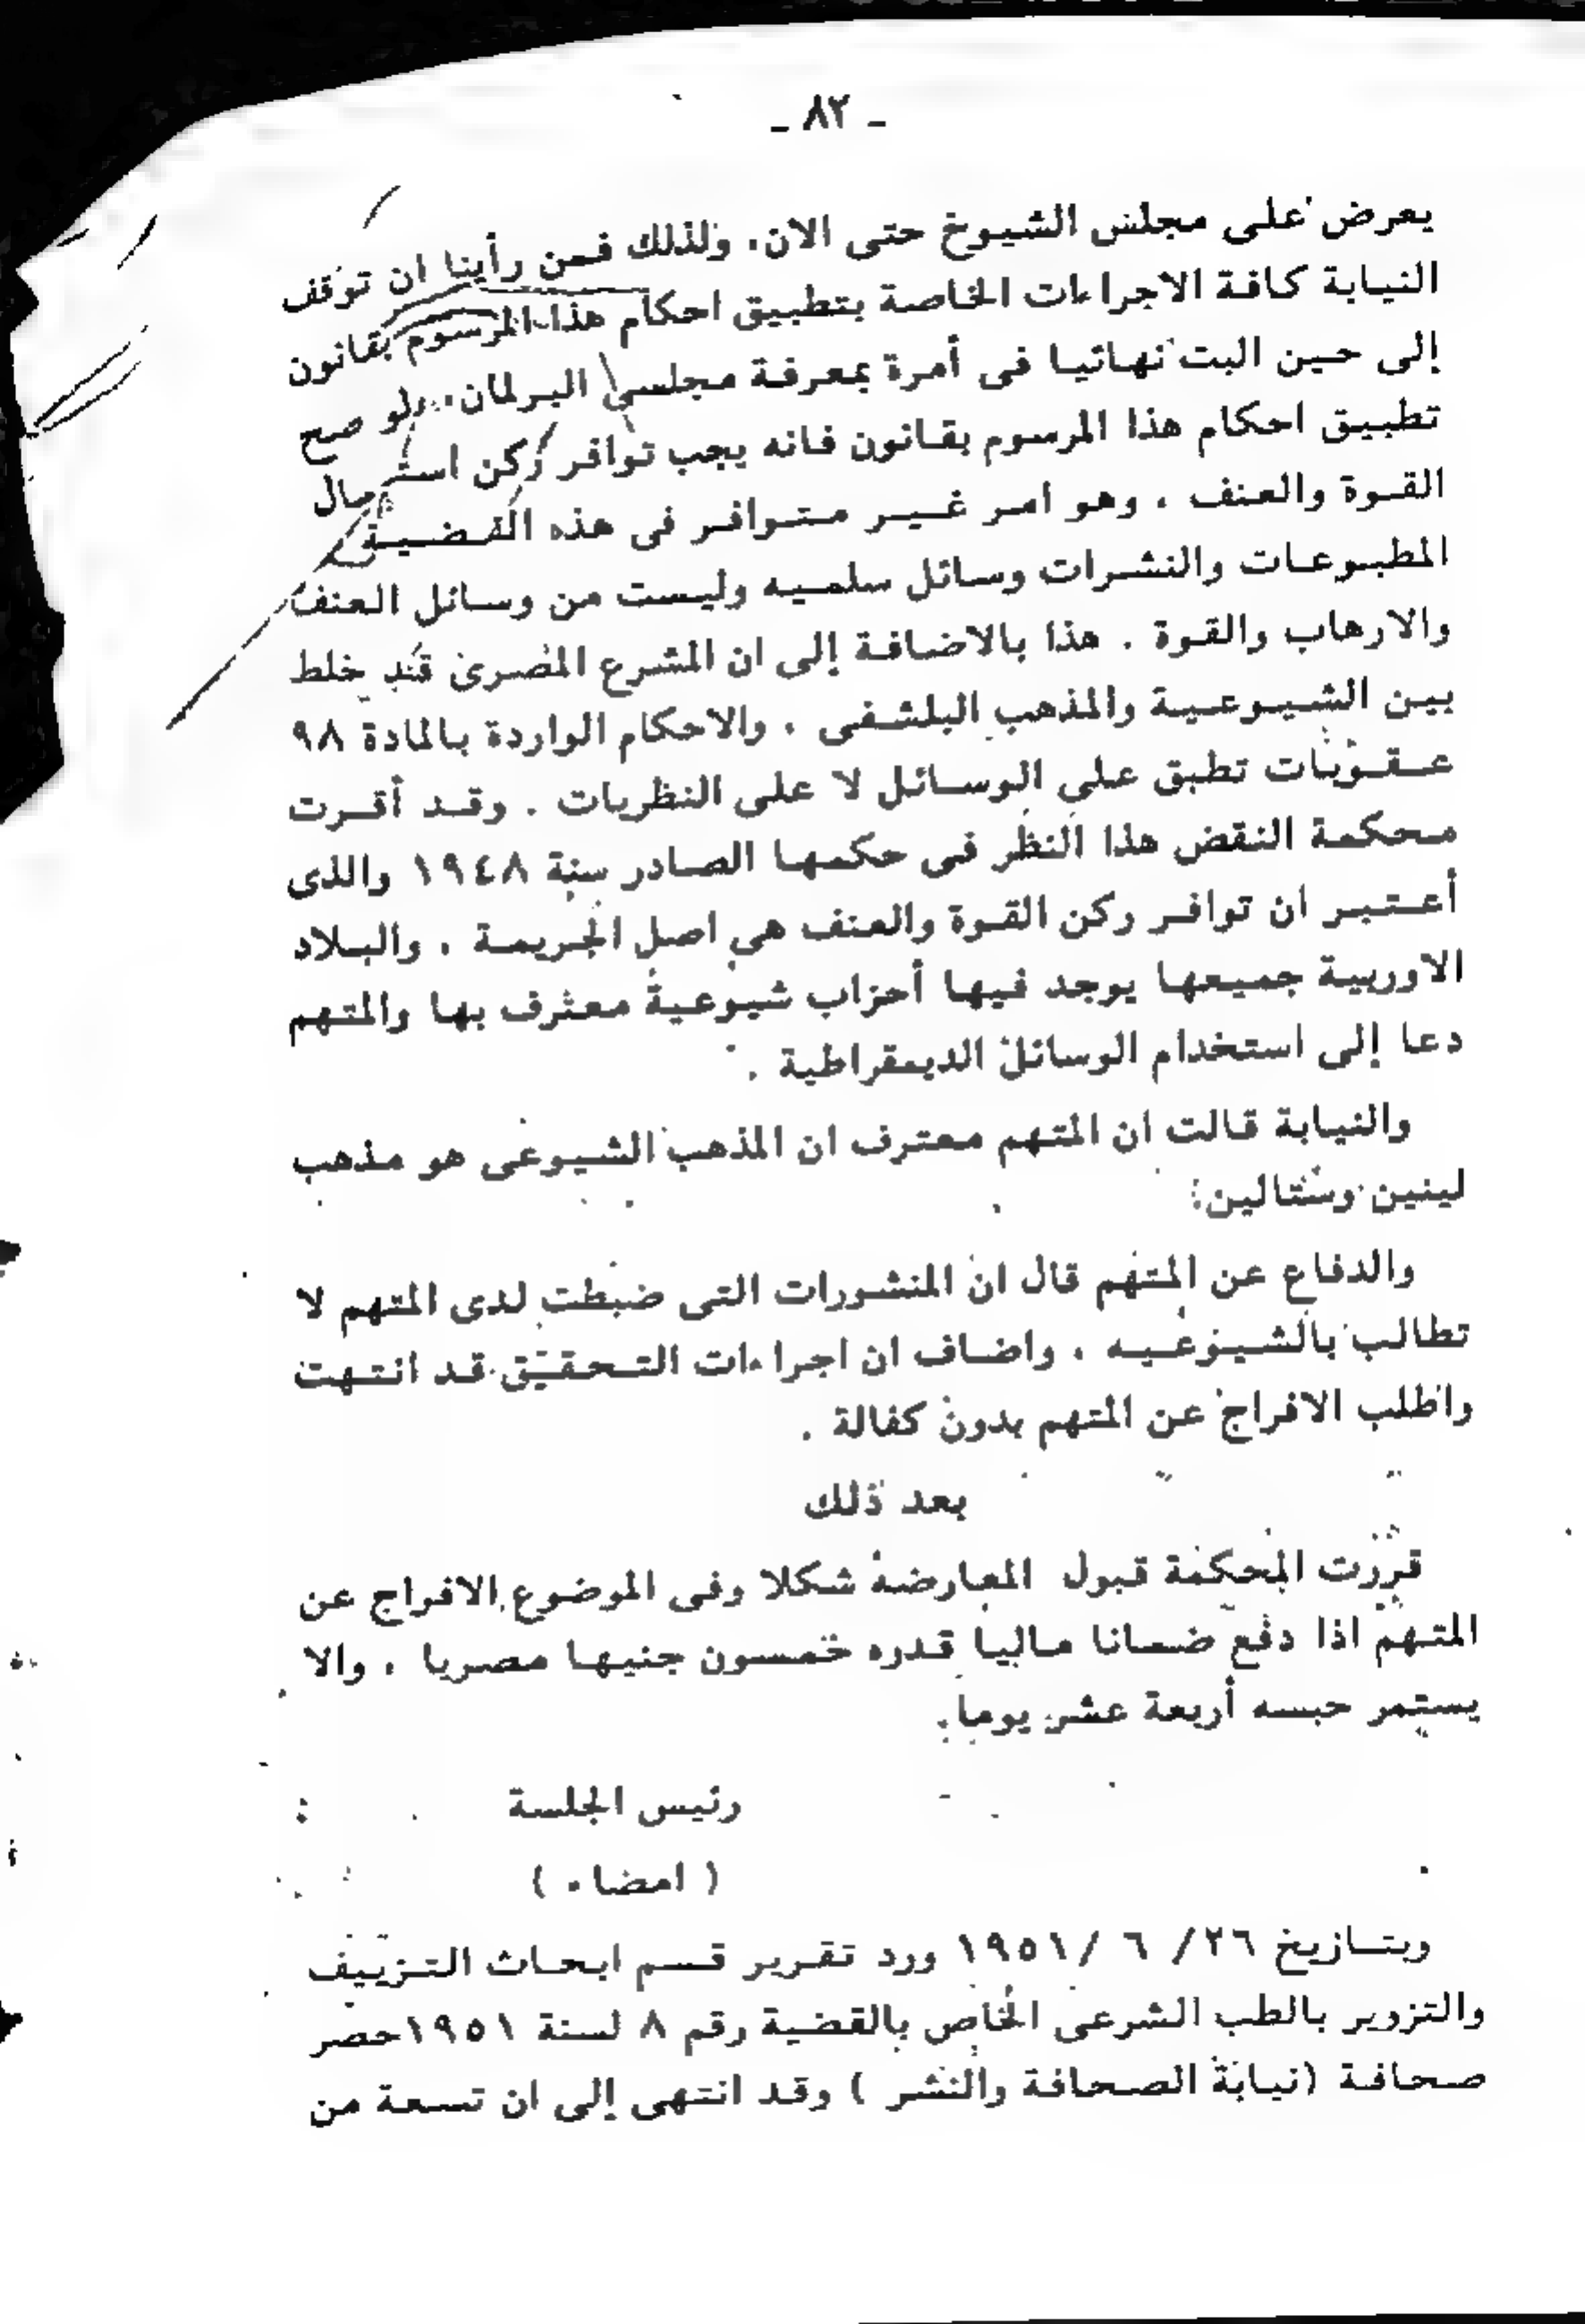 ـ ٨٢ ـ
يعرض على مجلس الشيوخ حتى الان. ولذلك فمن رأينا ان توقف
النيابة كافة الاجراءات الخاصة بتطبيق احكام هذا المرسوم بقانون
إلى حين البت نهائيا فى أمرة بمعرفة مجلسى البرلمان. ولو صح
تطبيق احكام هذا المرسوم بقانون فانه يجب توافر ركن استعمال
القوة والعنف ، وهو امر غير متوافر فى هذه القضية
المطبوعات والنشرات وسائل سلميه وليست من وسائل العنف
والارهاب والقوة . هذا بالاضافة إلى ان المشرع المصرى قد خلط
بين الشيوعية والمذهب البلشفى ، والاحكام الواردة بالمادة ٩٨
عقوبات تطبق على الوسائل لا على النظريات . وقد أقرت
محكمة النقض هذا النظر فى حكمها الصادر سنة ١٩٤٨ والذى
أعتبر ان توافر ركن القوة والعنف هى اصل الجريمة . والبلاد
الاوربية جميعها يوجد فيها أحزاب شيوعية معترف بها والمتهم
دعا إلى استخدام الوسائل الديمقراطية .
والنيابة قالت ان المتهم معترف ان المذهب الشيوعى هو مذهب
لينين وستالين.
والدفاع عن المتهم قال ان المنشورات التى ضبطت لدى المتهم لا
تطالب بالشيوعيه ، واضاف ان اجراءات التحقيق قد انتهت
واطلب الافراج عن المتهم بدون كفالة .
بعد ذلك
قررت المحكمة قبول المعارضة شكلا وفى الموضوع الافراج عن
المتهم اذا دفع ضمانا ماليا قدره خمسون جنيها مصريا ، والا
يستمر حبسه أربعة عشر يوما.
رئيس الجلسة
( امضاء )
وبتاريخ ٢٦/ ٦ /١٩٥١ ورد تقرير قسم ابحاث التزييف
والتزوير بالطب الشرعى الخاص بالقضية رقم ٨ لسنة ١٩٥١حصر
صحافة (نيابة الصحافة والنشر ) وقد انتهى إلى ان تسعة من